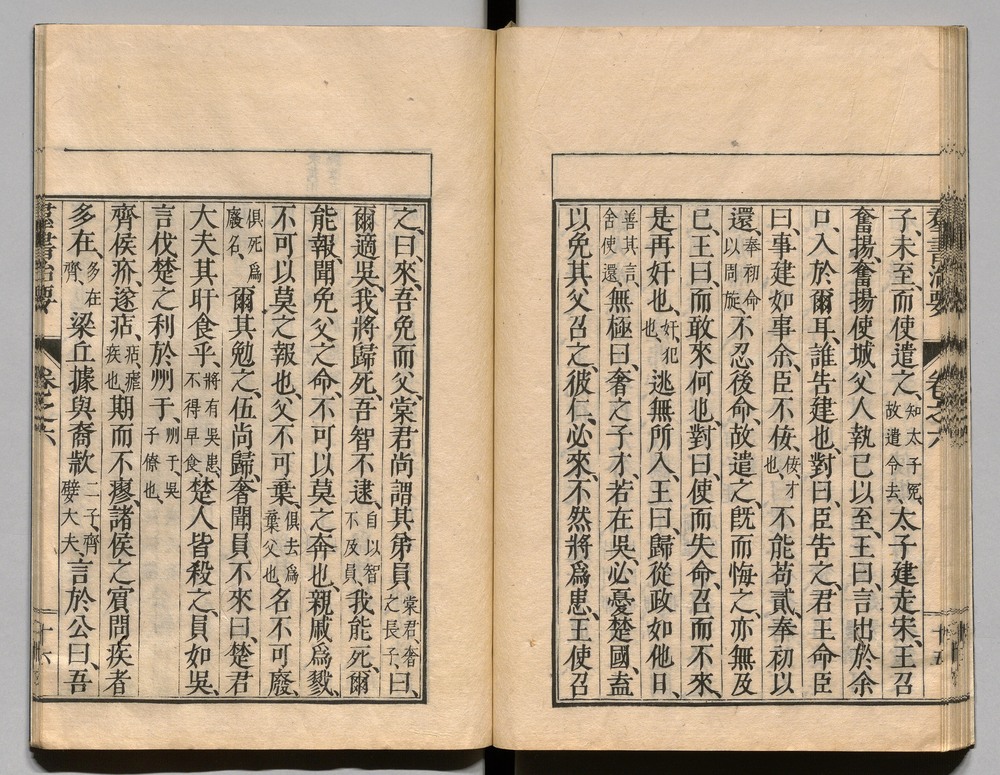 子、未至、而使遣之、知太子冤、故遣令去、太子建走宋、王召
奮揚、奮揚使城父人執已以至、王曰、言出於余
口、入於爾耳、誰告建也、對曰、臣告之、君王命臣
曰、事建如事余、臣不佞、佞才也、不能苟貳、奉初以
還、奉初命以周旋、不忍後命、故遣之、既而悔之、亦無及
已、王曰、而敢來何也、對曰、使而失命、召而不來、
是再奸也、奸、犯也、逃無所入、王曰、歸從政如他日、
善其言、舍使還、無極曰、奢之子才、若在吳、必憂楚國、盍
以免其父召之、彼仁、必來、不然將爲患、王使召
群書治要 卷之六 十五
之、曰、來、吾免而父、棠君尚謂其弟員、棠君、奢之長子、曰、
爾適吳、我將歸死、吾智不逮、自以智不及員、我能死、爾
能報、聞免父之命、不可以莫之奔也、親戚爲戮、
不可以莫之報也、父不可棄、俱去爲棄父也、名不可廢、
俱死爲廢名、爾其勉之、伍尚歸、奢聞員不來、曰、楚君
大夫其旰食乎、將有吳患、不得早食、楚人皆殺之、員如吳、
言伐楚之利於州于、州于、吳子僚也、
齊侯疥、遂痁、痁、瘧疾也、期而不瘳、諸侯之賓問疾者
多在、多在齊、梁丘據與裔款、二子、齊嬖大夫、言於公曰、吾
群書治要 卷之六 十六